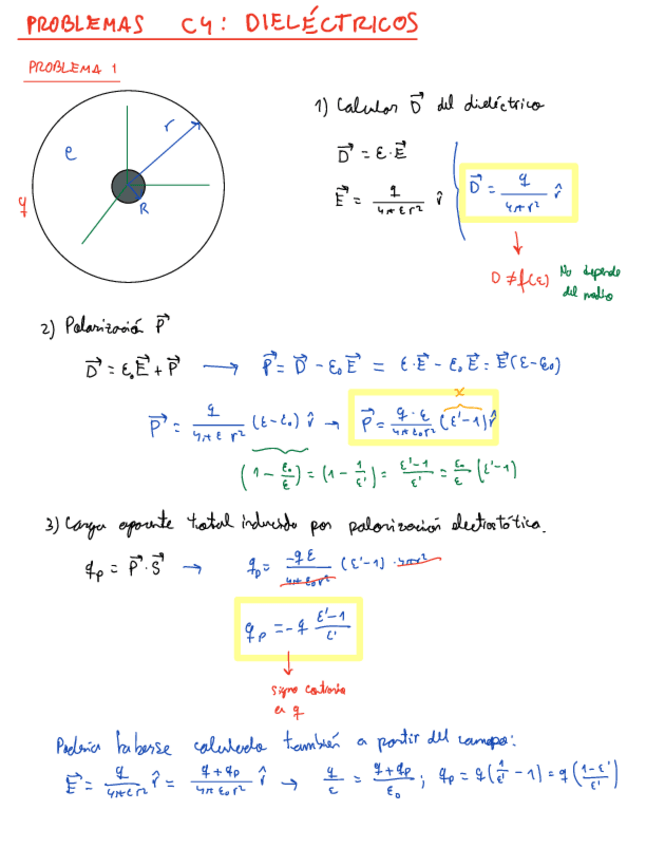 PROBLEMAS C4: DIELÉCTRICOS
PROBLEMA 1
e
r
q
R
1) Calcular D⃗ del dieléctrico
D⃗ = ε·E⃗
E⃗ = q / 4πεr² r̂
D⃗ = q / 4πr² r̂
D ≠ f(ε) No depende del medio
2) Polarización P⃗
D⃗ = ε₀E⃗ + P⃗ → P⃗ = D⃗ - ε₀E⃗ = ε·E⃗ - ε₀E⃗ = E⃗(ε-ε₀)
x
P⃗ = q / 4πεr² (ε-ε₀) r̂ → P⃗ = q·ε / 4πε₀r² (ε'-1) r̂
(1 - ε₀/ε) = (1 - 1/ε') = ε'-1/ε' = ε₀/ε (ε'-1)
3) Carga aparente total inducida por polarización electrostática.
qp = P⃗·S⃗ → qp = -qε / 4πε₀r² (ε'-1) · 4πr²
qp = -q ε'-1/ε'
signo contrario
a q
Podría haberse calculado también a partir del campo:
E⃗ = q / 4πεr² r̂ = q+qp / 4πε₀r² r̂ → q/ε = q+qp/ε₀ ; qp = q(1/ε' - 1) = q(1-ε'/ε')